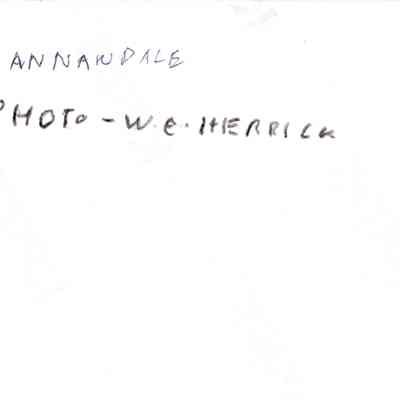 ANNANDALE
PHOTO - W.E. HERRICK